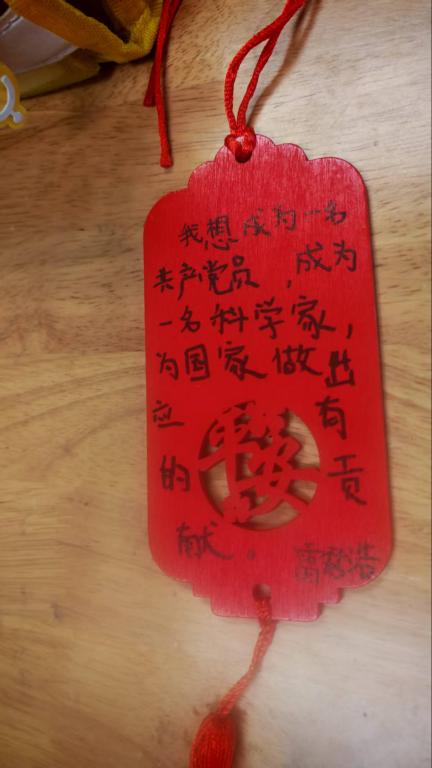 我想成为一名
共产党员，成为
一名科学家，
为国家做出
应有
的贡
献。
平安